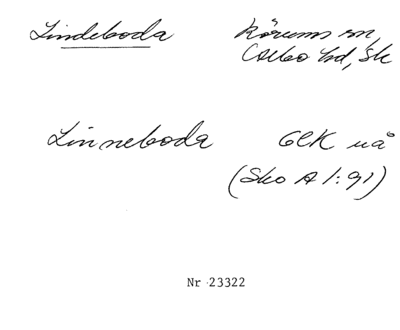 Lindeboda Rörums sn,
Albo hd, Sk
Linneboda GEK uå
(Sko A 1:91)
Nr 23322